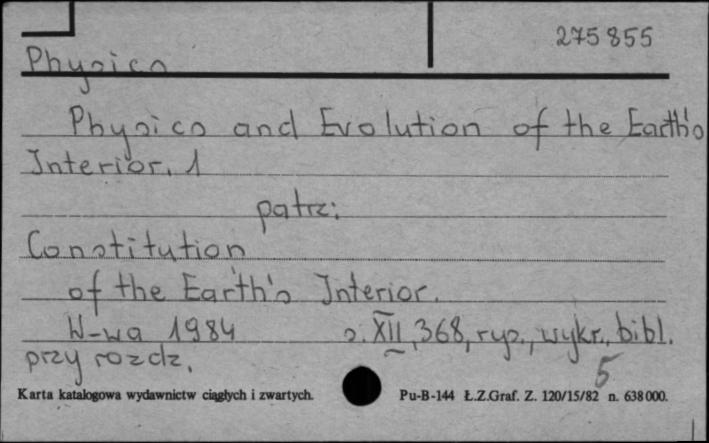 275855
Physics
Physics and Evolution of the Earth's
Interior. 1
patrz:
Constitution
of the Earth's Interior.
W-wa 1984 s. XII, 368, rys., wykr., bibl.
przy rozdz.
5
Karta katalogowa wydawnictw ciągłych i zwartych. Pu-B-144 Ł.Z.Graf. Z. 120/15/82 n. 638000.